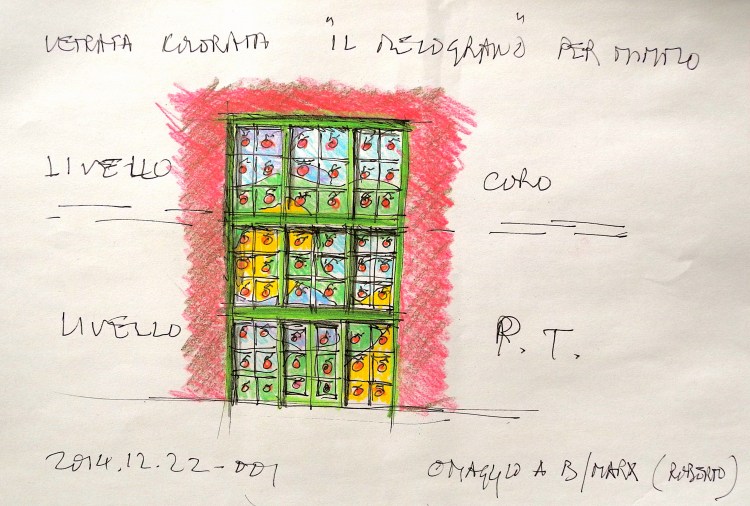 VETRATA KOLORATA "IL MELOGRANO" PER MIMMO
LIVELLO CORO
LIVELLO R.T.
2014.12.22-001 OMAGGIO A B/MARX (ROBERTO)